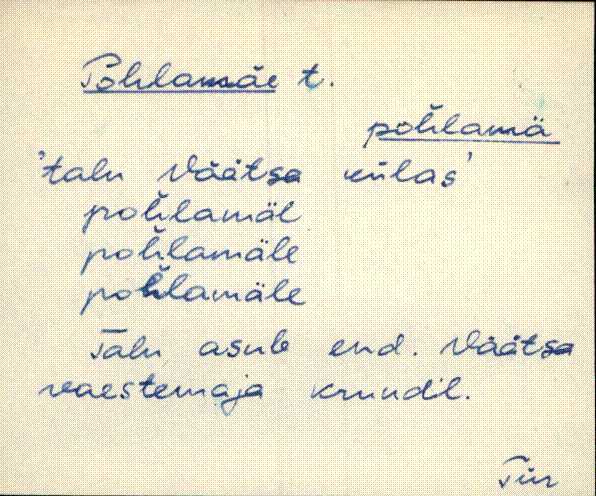 Pohlamäe t.
pohlamä
'talu Väätsa külas'
pohlamäl
pohlamäle
pohlamäle
Talu asub end. Väätsa
vaestemaja krundil.
Tür